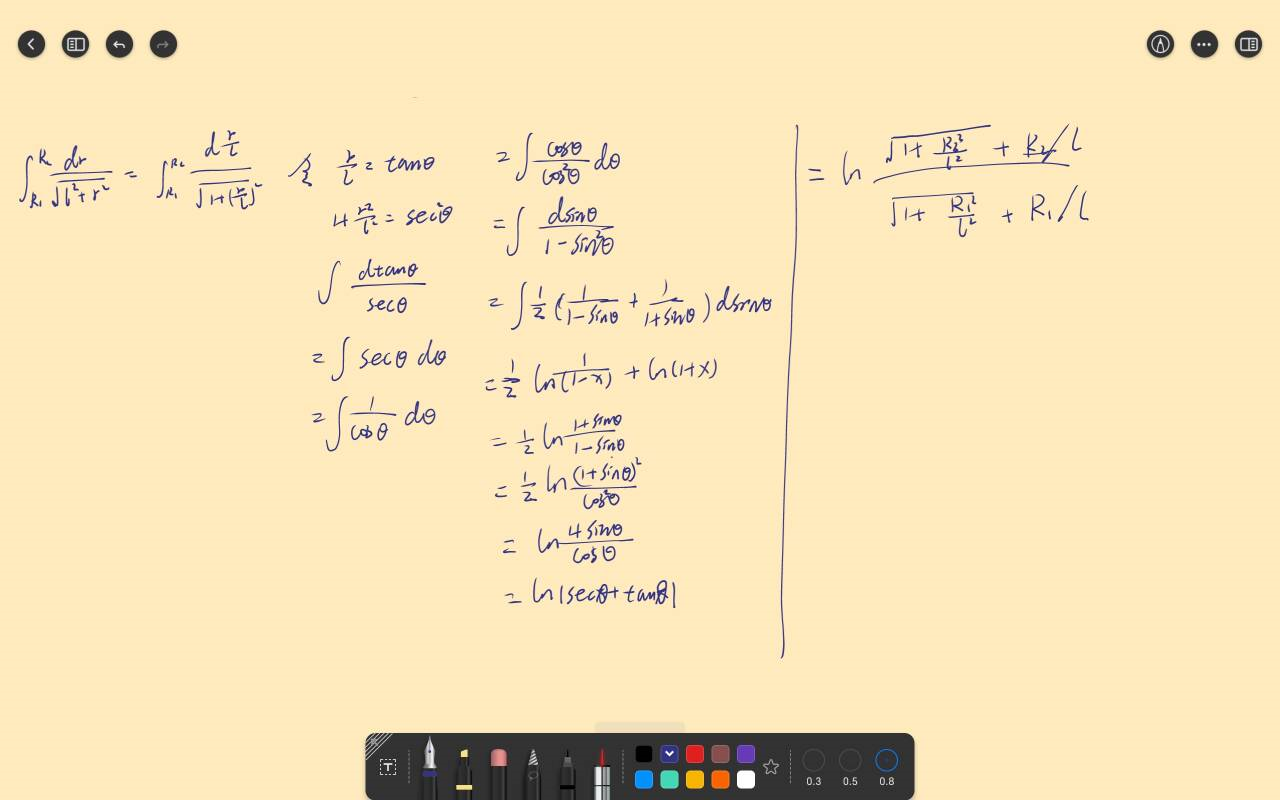 ∫_{R₁}^{R₂} dr/√(l²+r²) = ∫_{R₁}^{R₂} d(r/l)/√(1+(r/l)²)
令 r/l = tanθ
1+r²/l² = sec²θ
∫ dtanθ/secθ
= ∫ secθ dθ
= ∫ 1/cosθ dθ
= ∫ cosθ/cos²θ dθ
= ∫ dsinθ/(1-sin²θ)
= ∫ 1/2 (1/(1-sinθ) + 1/(1+sinθ)) dsinθ
= 1/2 ln 1/(1-x) + ln(1+x)
= 1/2 ln (1+sinθ)/(1-sinθ)
= 1/2 ln (1+sinθ)²/cos²θ
= ln (1+sinθ)/cosθ
= ln|secθ+tanθ|
= ln (√(1+R₂²/l²) + R₂/l)/(√(1+R₁²/l²) + R₁/l)
T
0.3 0.5 0.8